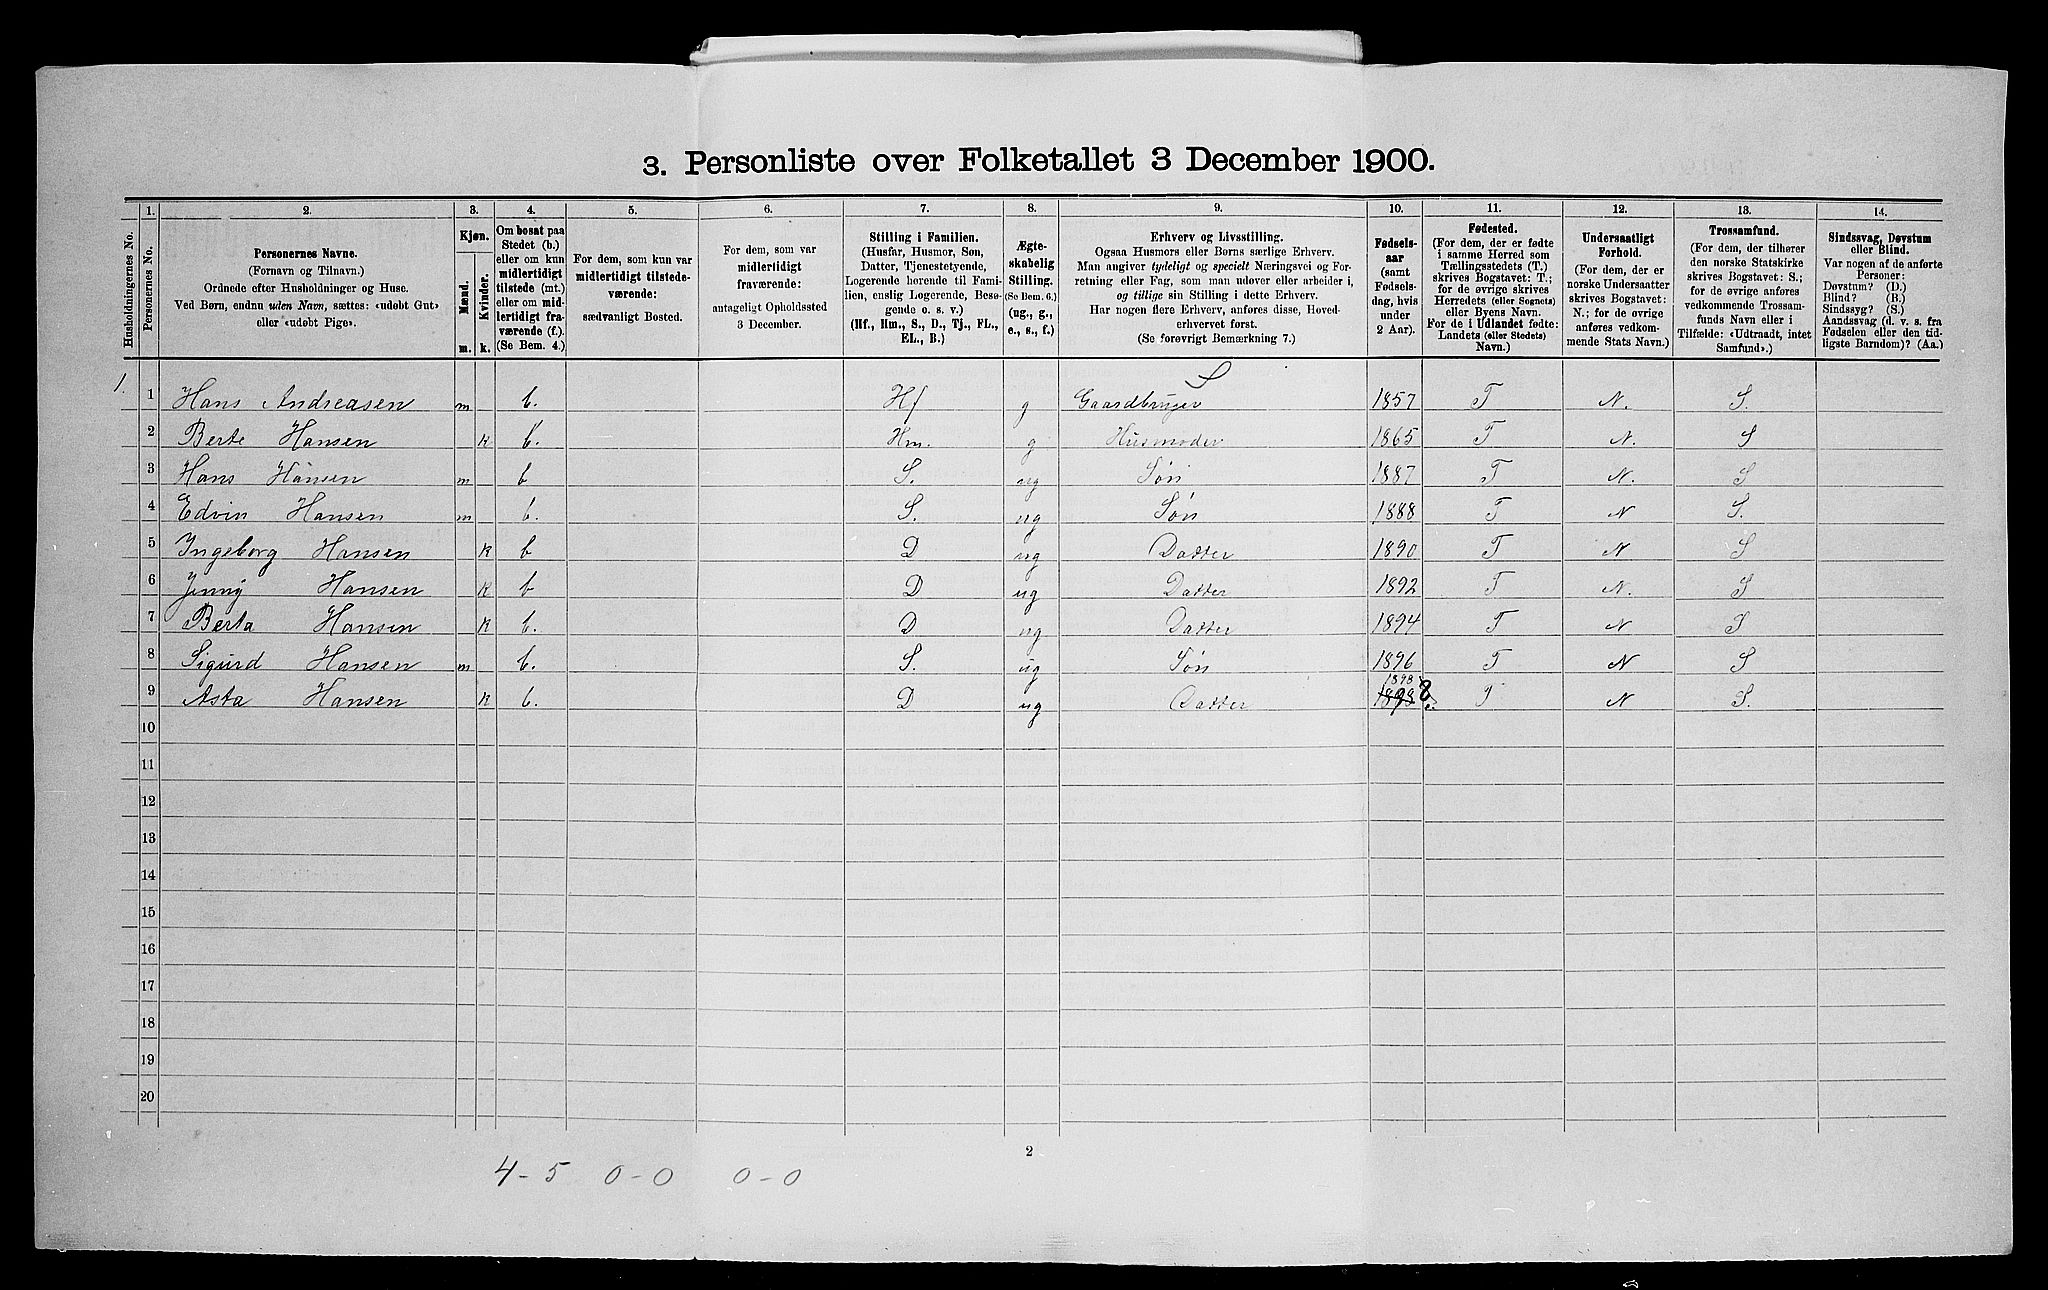 3. Personliste over Folketallet 3 December 1900.
Husholdningernes No.
1.
Personernes No.
2.
Personernes Navne.
(Fornavn og Tilnavn.)
Ordnede efter Husholdninger og Huse.
Ved Børn, endnu uden Navn, sættes: «udøbt Gut»
eller «udøbt Pige».
3.
Kjøn.
Mænd.
Kvinder.
m. k.
4.
Om bosat paa
Stedet (b.)
eller om kun
midlertidigt
tilstede (mt.)
eller om mid-
lertidigt fra-
værende (f.)
(Se Bem. 4.)
5.
For dem, som kun var
midlertidigt tilstede-
værende:
sædvanligt Bosted.
6.
For dem, som var
midlertidigt
fraværende:
antageligt Opholdssted
3 December.
7.
Stilling i Familien.
(Husfar, Husmor, Søn,
Datter, Tjenestetyende,
Logerende hørende til Fami-
lien, enslig Logerende, Besø-
gende o. s. v.)
(Hf., Hm., S., D., Tj., FL.,
EL., B.)
8.
Ægte-
skabelig
Stilling.
(Se Bem. 6.)
(ug., g.,
e., s., f.)
9.
Erhverv og Livsstilling.
Ogsaa Husmors eller Børns særlige Erhverv.
Man angiver tydeligt og specielt Næringsvei og For-
retning eller Fag, som man udøver eller arbeider i,
og tillige sin Stilling i dette Erhverv.
Har nogen flere Erhverv, anføres disse, Hoved-
erhvervet først.
(Se forøvrigt Bemærkning 7.)
10.
Fødsels-
aar
(samt
Fødsels-
dag, hvis
under
2 Aar).
11.
Fødested.
(For dem, der er fødte
i samme Herred som
Tællingsstedets (T.)
skrives Bogstavet: T.;
for de øvrige skrives
Herredets (eller Sognets)
eller Byens Navn.
For de i Udlandet fødte:
Landets (eller Stedets)
Navn.)
12.
Undersaatligt
Forhold.
(For dem, der er
norske Undersaatter
skrives Bogstavet:
N.; for de øvrige
anføres vedkom-
mende Stats Navn.)
13.
Trossamfund.
(For dem, der tilhører
den norske Statskirke
skrives Bogstavet: S.;
for de øvrige anføres
vedkommende Trossam-
funds Navn eller i
Tilfælde: «Udtraadt, intet
Samfund».)
14.
Sindssvag, Døvstum
eller Blind.
Var nogen af de anførte
Personer:
Døvstum? (D.)
Blind? (B.)
Sindssyg? (S.)
Aandssvag (d. v. s. fra
Fødselen eller den tid-
ligste Barndom)? (Aa.)
S
1. 1 Hans Andreasen m b. Hf g Gaardbruger 1857 T N. S.
2 Berte Hansen k b. Hm. g Husmoder 1865 T N. S
3 Hans Hansen m b S. ug Søn 1887 T N. S
4 Edvin Hansen m b. S. ug Søn 1888 T N S.
5 Ingeborg Hansen k b D ug Datter 1890 T N S
6 Jenny Hansen k b D ug Datter 1892 T N. S
7 Berta Hansen k b. D ug Datter 1894 T N S
8 Sigurd Hansen m b. S. ug Søn 1896 T N S
1898
9 Asta Hansen k b. D ug Datter 1898 8 T N S.
10
11
12
13
14
15
16
17
18
19
20
2
4-5 0-0 0-0